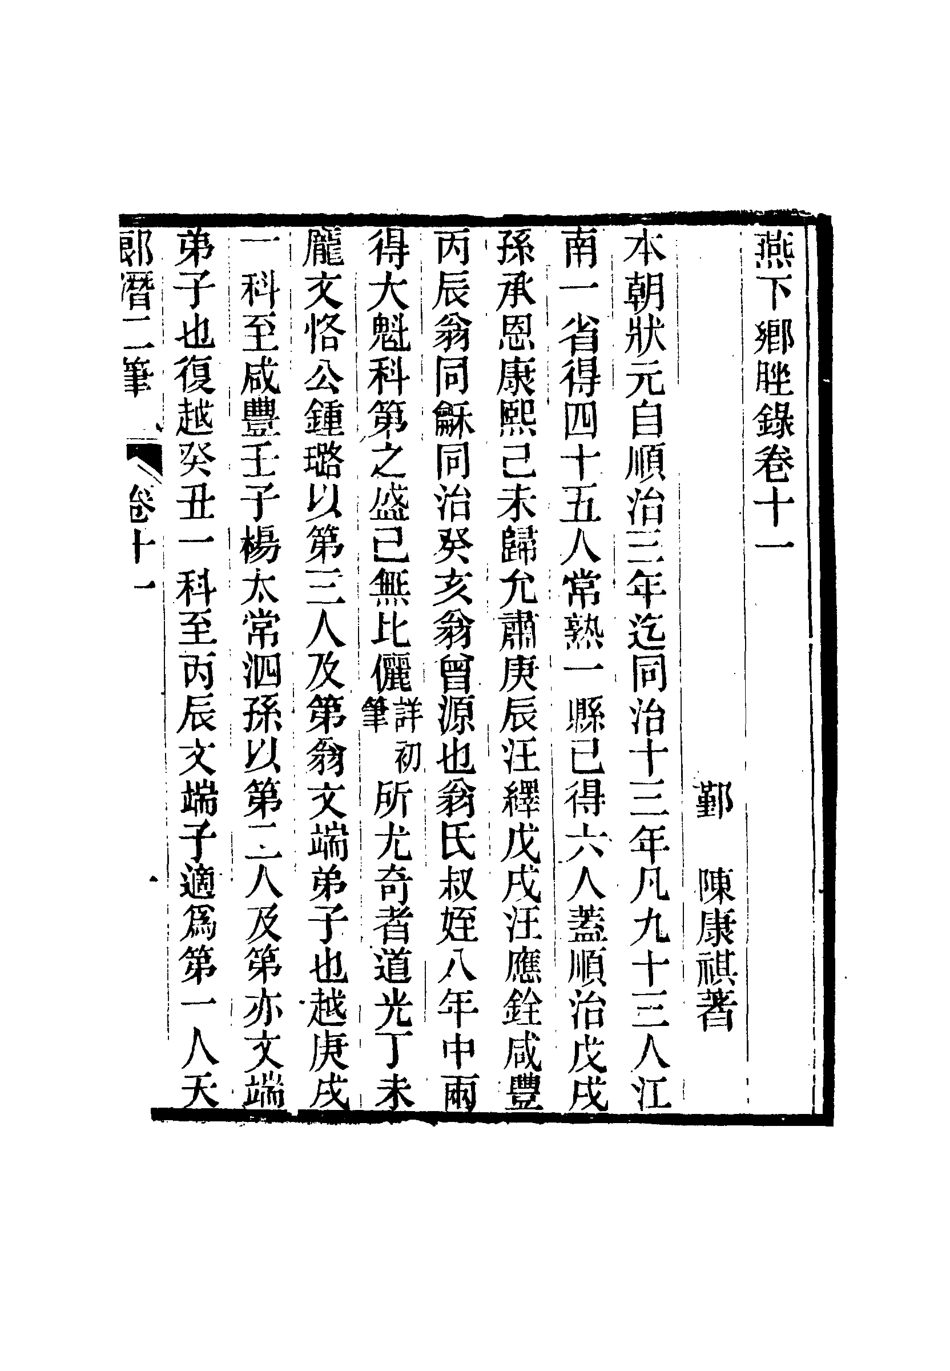 燕下鄉脞錄卷十一
鄞　陳康祺著
本朝狀元自順治三年迄同治十三年凡九十三人江
南一省得四十五人常熟一縣已得六人蓋順治戊戌
孫承恩康熙己未歸允肅庚辰汪繹戊戌汪應銓咸豐
丙辰翁同龢同治癸亥翁曾源也翁氏叔姪八年中兩
得大魁科第之盛已無比儷詳初筆所尤奇者道光丁未
龐文恪公鍾璐以第三人及第翁文端弟子也越庚戌
一科至咸豐壬子楊太常泗孫以第二人及第亦文端
弟子也復越癸丑一科至丙辰文端子適爲第一人天
郎潛二筆　卷十一　一